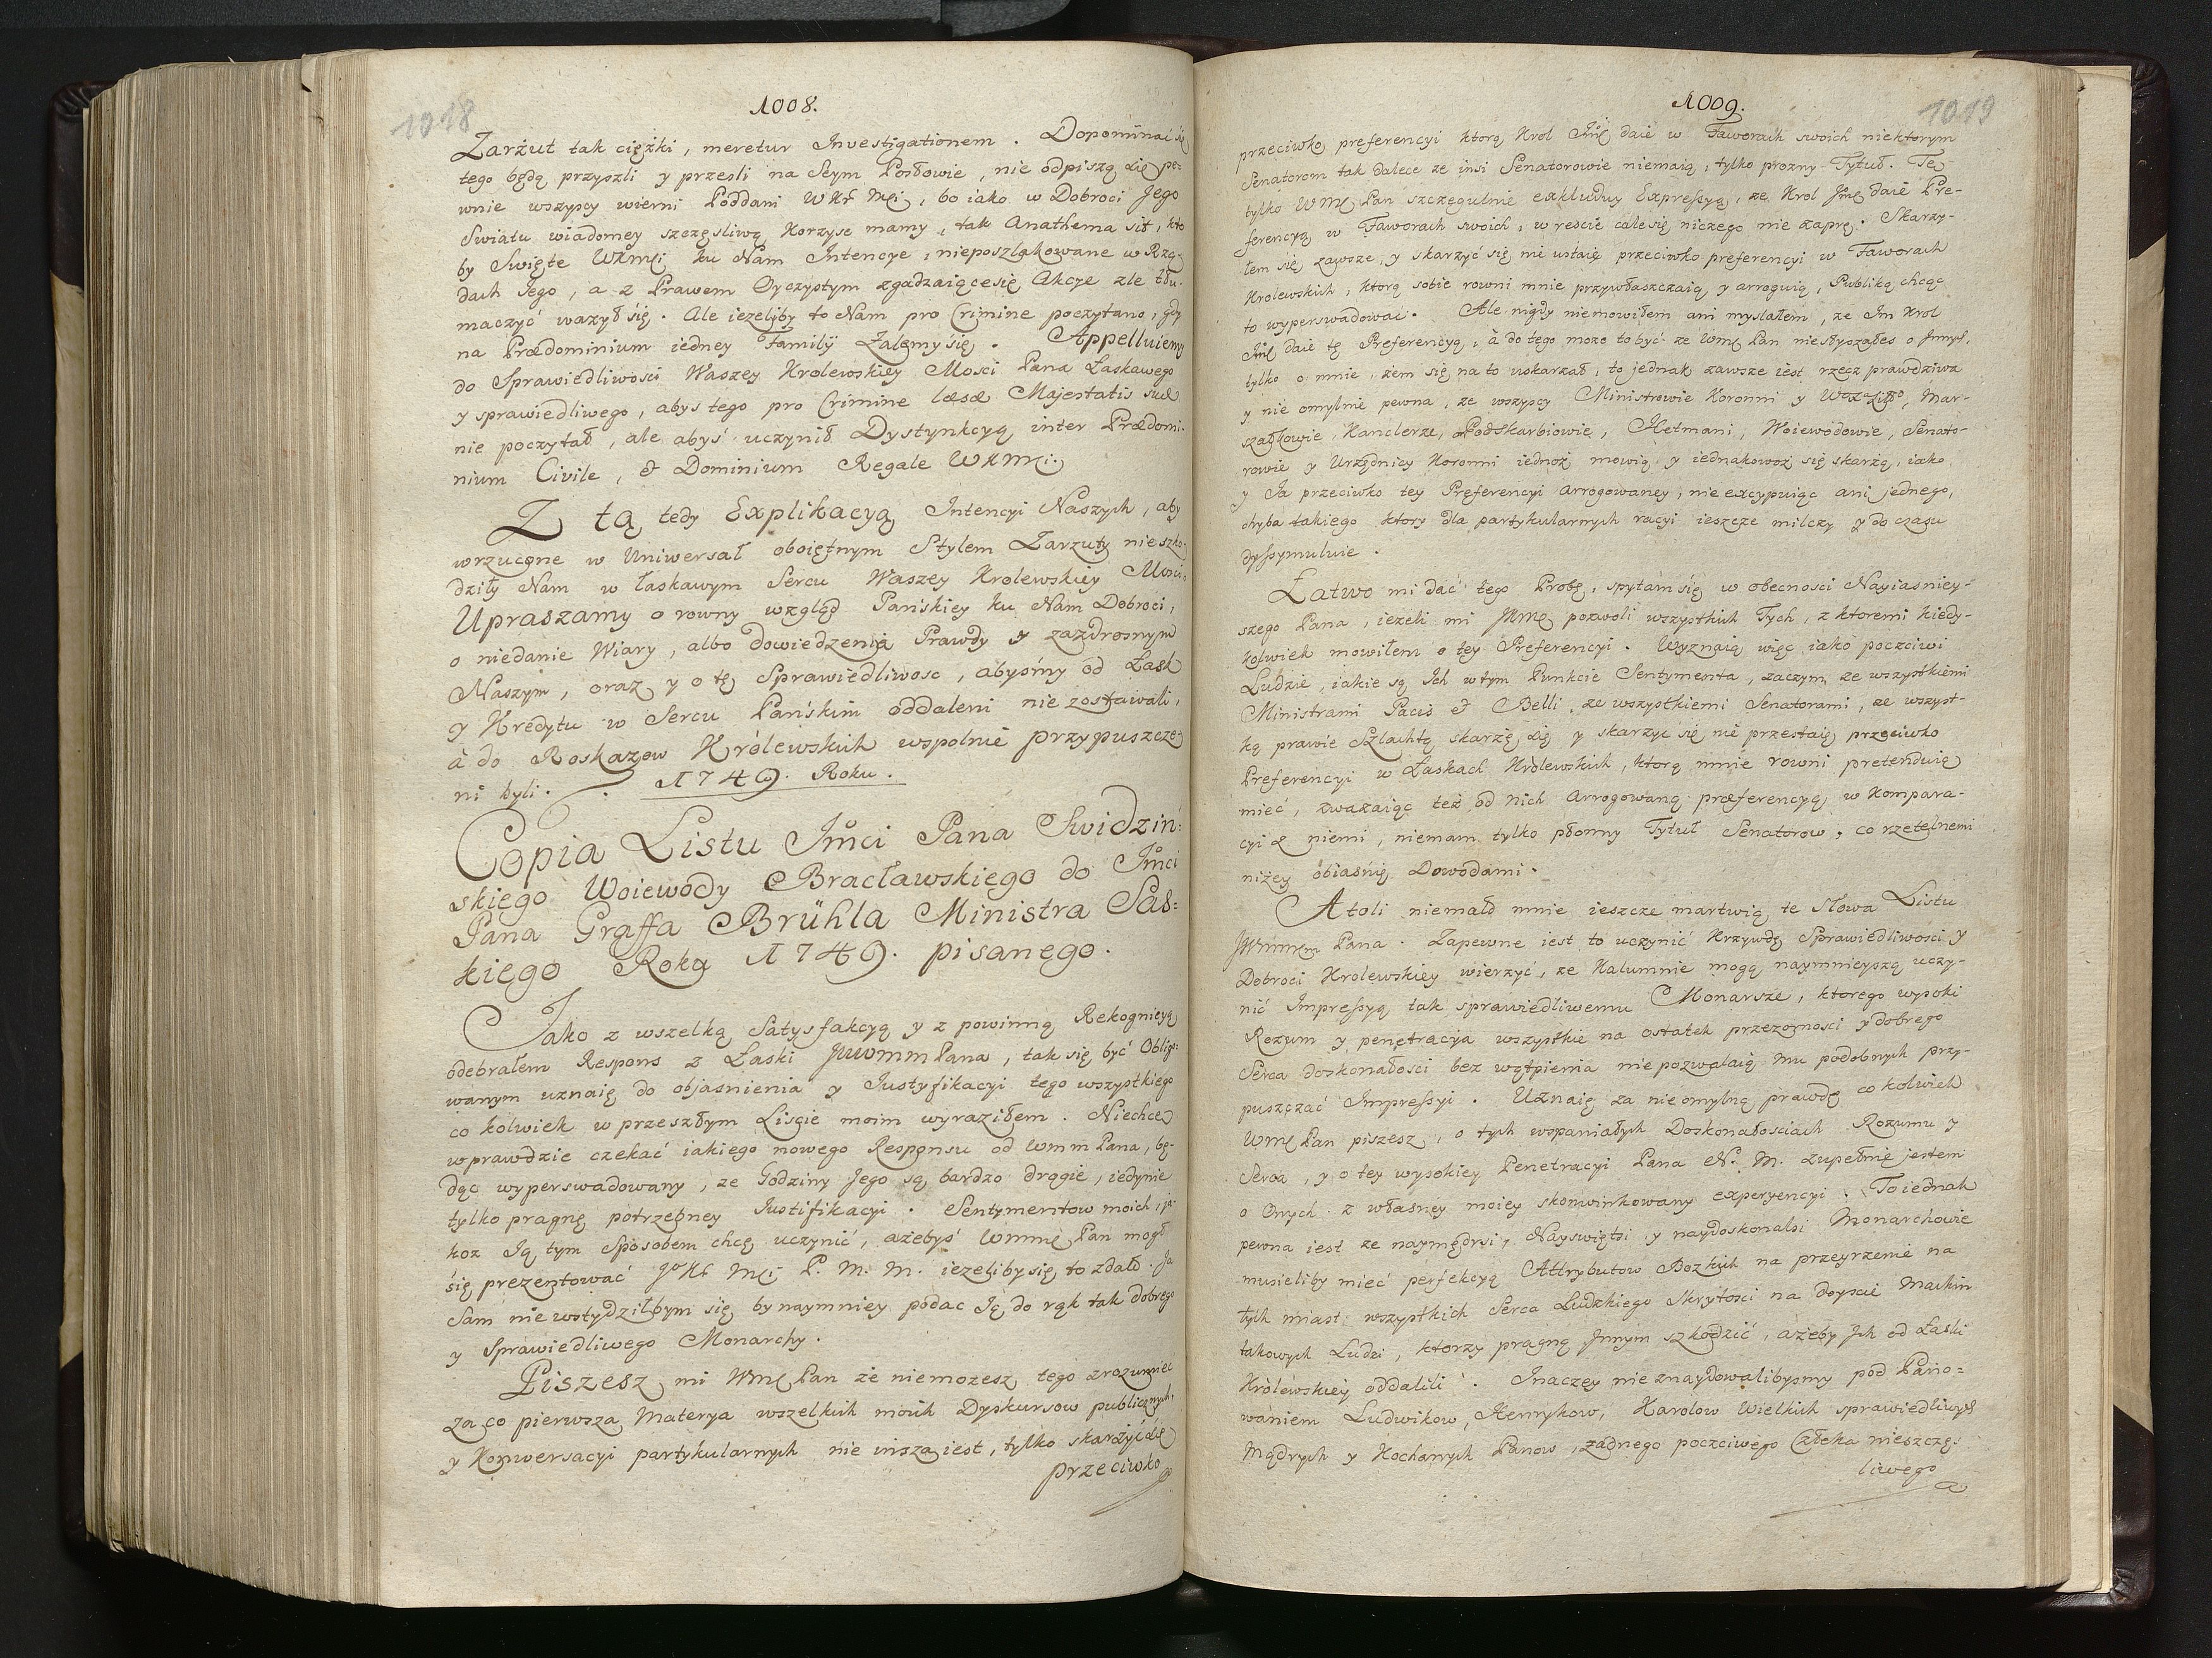 1018
1008.
Zarzut tak cięzki, meretur Investigationem. Dopominać się
tego będą przyszli y przeszli na Seym Posłowie, nie odpiszą się pe=
wnie wszyscy wierni Poddani WKr Mci, bo iako w Dobroci Jego
Swiatu wiadomey szczęsliwą Korzysc mamy, tak Anathema sit, kto
by Swięte WKMci ku Nam Intencye, nieposzlakowane w Rzą=
dach Jego, a z Prawem Oyczystym zgadzaiącesię Akcye zle tłu=
maczyć wazył się. Ale iezeliby to Nam pro Crimine poczytano, gdy
na Prædominium iedney Familij Zalemy się. Appelluiemy
do Sprawiedliwosci Waszey Krolewskiey Mosci Pana Łaskawego
y sprawiedliwego, abys tego pro Crimine læsæ Majestatis suæ
nie poczytał, ale abyś uczynił Dystynkcyą inter Prædomi=
nium Civile, & Dominium Regale WKMci.
Z tą tedy Explikacyą Intencyi Naszych, aby
wrzucone w Uniwersał oboiętnym Stylem Zarzuty nieszko=
dziły Nam w łaskawym Sercu Waszey Krolewskiey Mosci.
Upraszamy o rowny wzgląd Pańskiey ku Nam Dobroci,
o niedanie Wiary, albo dowiedzenia Prawdy y zazdrosnym
Naszym, oraz y o tę Sprawiedliwosc, abyśmy od Łask
y Kredytu w Sercu Pańskim oddaleni nie zostawali,
à do Roskazow Królewskich wspolnie przypuszcze=
ni byli. 1749. Roku.
Copia Listu Jmci Pana Swidzin=
skiego Woiewody Bracławskiego do Jmci
Pana Graffa Brühla Ministra Sas=
kiego Roku 1749. pisanego.
Jako z wszelką Satysfakcyą y z powinną Rekognicyą
odebrałem Respons z Łaski JWWmm Pana, tak się być Oblig=
wanym uznaię do objasnienia y Justyfikacyi tego wszystkiego
co kolwiek w przeszłym Liscie moim wyraziłem. Niechcę
wprawdzie czekać iakiego nowego Responsu od Wmm Pana, bę=
dąc wyperswadowany, ze Godziny Jego są bardzo drogie, iedynie
tylko pragnę potrzebney Justifikacyi. Sentymentow moich, ja=
koz Ją tym Sposobem chcę uczynić, ażebyś Wmmę Pan mogł
się prezentować JoKr Mci P. M. M. iezeliby się to zdało. Ja
Sam nie wstydziłbym się bynaymniey podac Ją do rąk tak dobrego
y Sprawiedliwego Monarchy.
Piszesz mi Wmć Pan że niemozesz tego zrozumieć
za co pierwsza Materya wszelkich moich Dyskursow publicznych,
y Konwersacyi partykularnych nie insza iest, tylko skarżyć się
przeciwko
1019
1009.
przeciwko preferencyi ktorą Krol Jmć daie w Faworach swoich niektorym
Senatorom tak dalece ze insi Senatorowie niemaią, tylko prozny Tytuł. Tę
tylko Wmć Pan szczegulnie exkluduy Expressyą, ze Krol Jmć daie Pre-
ferencyą w Faworach swoich, w rescie cale się niczego nie zaprę. Skarzy-
łem się zawsze, y skarzyć się nie ustaię przeciwko preferencyi w Faworach
Krolewskich, ktorą sobie rowni mnie przywłaszczaią y arroguią, Publikę chcąc
to wyperswadować. Ale nigdy niemowiłem ani myslałem, ze Jm Krol
Jmć daie tę Preferencyą, à do tego moze to być ze Wmć Pan niesłyszałes o Jnnych,
tylko o mnie, zem się na to uskarzał, to jednak zawsze iest rzecz prawdziwa
y nie omylnie pewna, ze wszyscy Ministrowie Koronni y WoXaLitgo, Mar-
szałkowie, Kanclerze, Podskarbiowie, Hetmani, Woiewodowie, Senato-
rowie y Urzędnicy Koronni iednoz mowią y iednakowoz się skarżą, iako
y Ja przeciwko tey Preferencyi Arrogowaney, nie excypuiąc ani jednego,
chyba takiego ktory dla partykularnych racyi ieszcze milczy y do czasu
dyssymuluie.
Łatwo mi dać tego Probę, spytam się w obecnosci Nayiasniey-
szego Pana, iezeli mi JWmć pozwoli wszystkich Tych, z ktoremi kiedy-
kolwiek mowiłem o tey Preferencyi. Wyznaią więc iako poczciwi
Ludzie, iakie są Ich w tym Punkcie Sentymenta, zaczym ze wszystkiemi
Ministrami Pacis & Belli, ze wszystkiemi Senatorami, ze wszyst-
ką prawie Szlachtą skarzę się y skarzyc się nie przestaię przeciwko
Preferencyi w Łaskach Królewskich, ktorą mnie rowni pretenduią
mieć, zwazaiąc też od nich Arrogowaną præferencyą, w Kompara-
cyi z niemi, niemam tylko płonny Tytuł Senatorow, co rzetelnemi
niżey obiaśnię Dowodami.
Atoli niemało mnie ieszcze martwią te Słowa Listu
JWmmm Pana. Zapewne iest to uczynić Krzywdę Sprawiedliwosci y
Dobroci Krolewskiey wierzyć, ze Kalumnie mogą naymnieyszą uczy-
nić Impressyą tak sprawiedliwemu Monarsze, ktorego wysoki
Rozum y penetracya wszystkie na ostatek przezornosci y dobrego
Serca doskonałosci bez wątpienia nie pozwalaią mu podobnych przy-
puszczać Impressyi. Uznaię za nieomylną prawdę co kolwiek
Wmć Pan piszesz, o tych wspaniałych Doskonałosciach Rozumu y
Serca, y o tey wysokiey Penetracyi Pana N. M. zupełnie jestem
o Onych z własney moiey skonwinkowany experyencyi. To iednak
pewna iest ze naymędrsi, Nayswiętsi y naydoskonalsi Monarchowie
musieliby mieć perfekcyą Attrybutow Bozkich na przeyrzenie na
tych miast wszystkich Serca Ludzkiego Skrytosci na doyscie Machin
takowych Ludzi, ktorzy pragną Jnnym szkodzić, ażeby Jch od Łaski
Królewskiey oddalili. Inaczey nie znaydowalibysmy pod Pano=
waniem Ludwikow, Henrykow, Karolow Wielkich sprawiedliwych
Mądrych y Kochanych Panow, żadnego poczciwego Człeka nieszczęs=
liwego